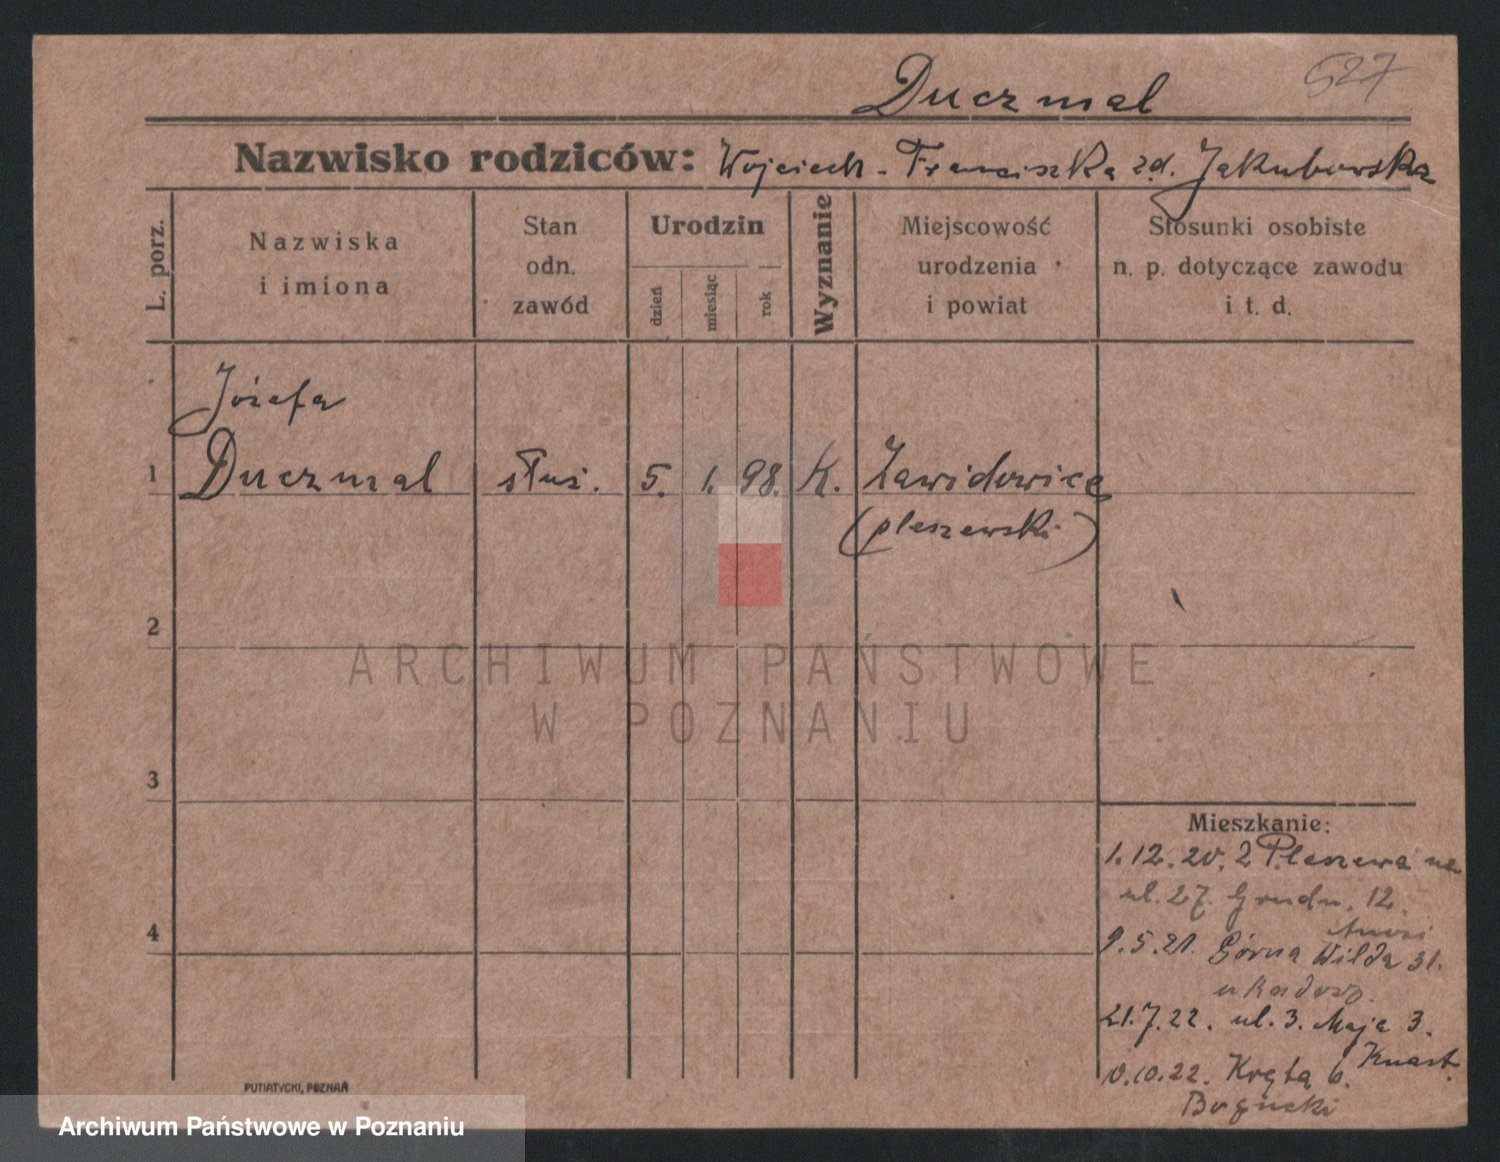 527
Duczmal
Nazwisko rodziców: Wojciech - Franciszka zd. Jakubowska
L. porz.
Nazwiska i imiona
Stan odn. zawód
Urodzin
dzień
miesiąc
rok
Wyznanie
Miejscowość urodzenia i powiat
Stosunki osobiste n. p. dotyczące zawodu i t. d.
Józefa
1 Duczmal służ. 5. 1. 98. K. Zawidowice
(pleszewski)
2
ARCHIWUM PAŃSTWOWE
W POZNANIU
3
Mieszkanie:
1.12.20. z Pleszewa na
ul. 27. Grudn. 12.
4
9.5.21. Górna Wilda 31.
u
21.7.22. ul. 3. Maja 3.
Knast.
10.10.22. Kręta 6.
Bogucki
PUTIATYCKI, POZNAŃ
Archiwum Państwowe w Poznaniu